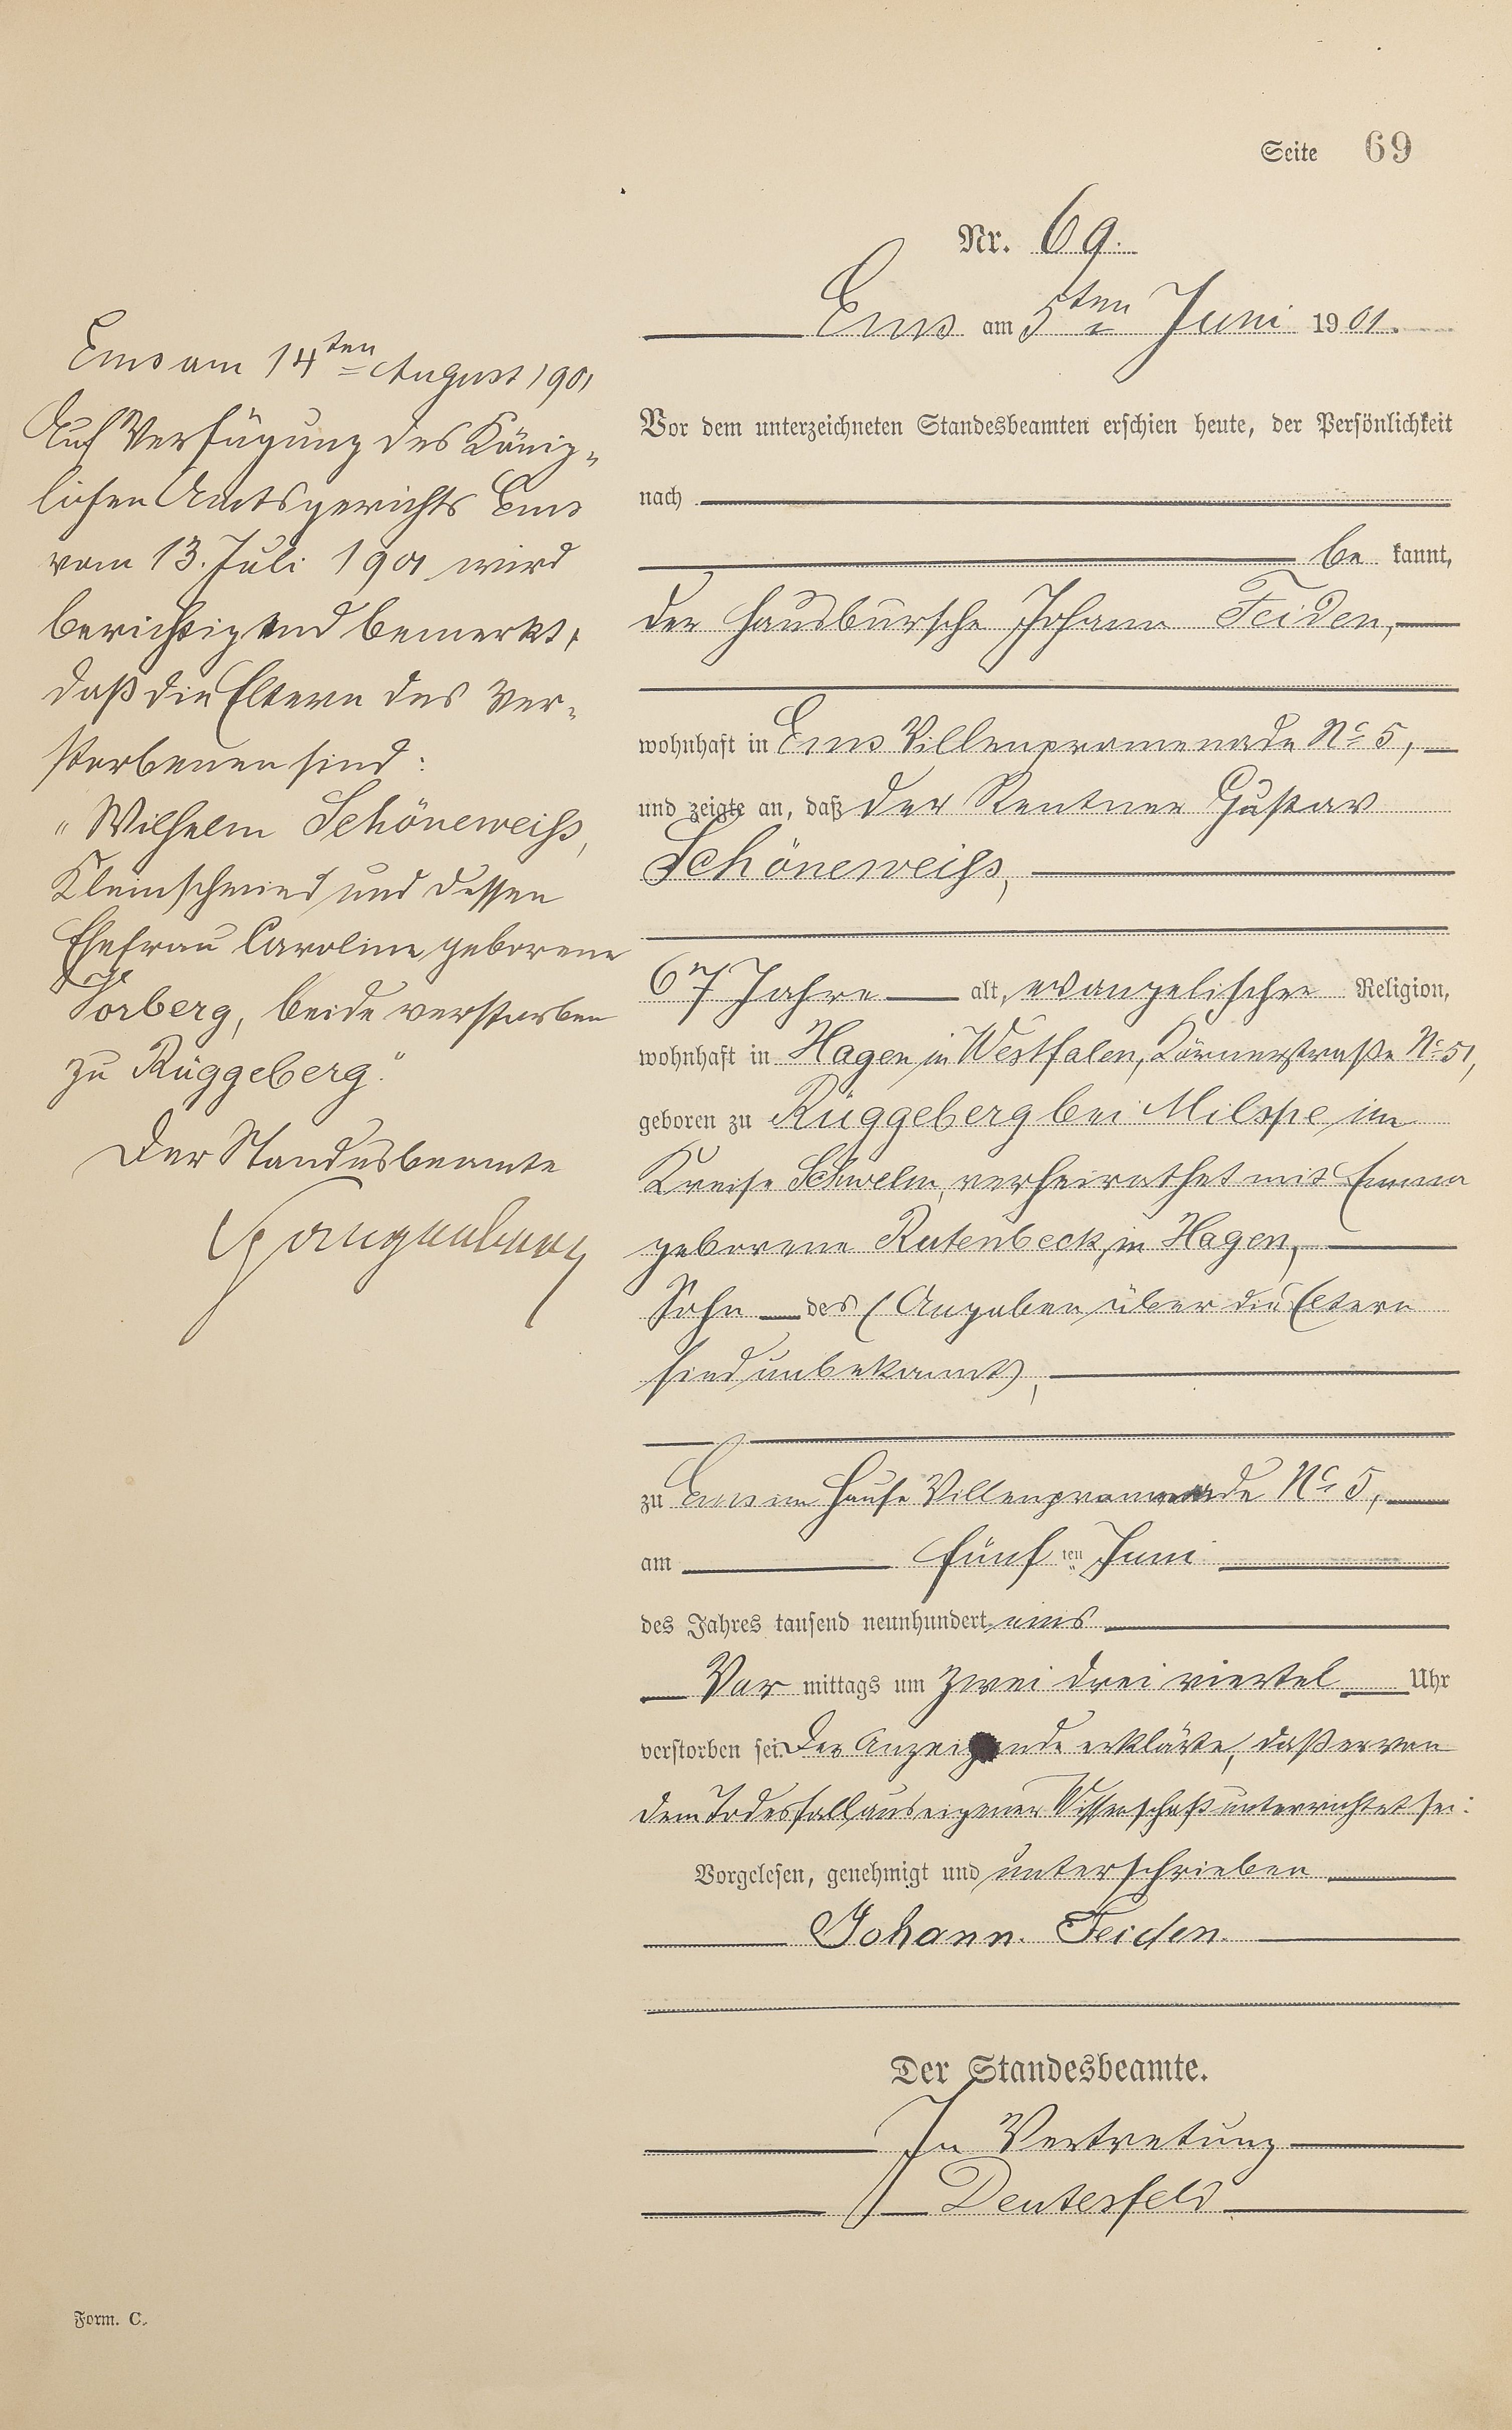 Seite 69
Nr. 69.
Ems am 5ten Juni 1901.
Vor dem unterzeichneten Standesbeamten erschien heute, der Persönlichkeit
nach
be kannt,
der Hausbursche Johann Feiden,
wohnhaft in Ems Villenpromenade No 5,
und zeigte an, daß der Rentner Gustav
Schöneweiss,
67 Jahre alt, evangelischer Religion,
wohnhaft in Hagen in Westfalen, Körnerstraße No 51,
geboren zu Rüggeberg bei Milspe im
Kreise Schwelm, verheirathet mit Emma
geborene Rutenbeck, in Hagen,
Sohn des (Angaben über die Eltern
sind unbekannt),
zu Ems im Hause Villenpromenade No 5,
am fünf ten Juni
des Jahres tausend neunhundert eins
Vor mittags um zwei drei viertel Uhr
verstorben sei. Der Anzeigende erklärte, daß er von
dem Todesfall aus eigener Wissenschaft unterrichtet sei.
Vorgelesen, genehmigt und unterschrieben
Johann. Feiden.
Der Standesbeamte.
In Vertretung
Deutesfeld
Ems am 14ten August 1901
Auf Verfügung des König-
lichen Amtsgerichts Ems
vom 13. Juli 1901 wird
berichtigend bemerkt,
daß die Eltern des Ver-
storbenen sind:
"Wilhelm Schöneweiss,
Kleinschmied und dessen
Ehefrau Caroline geborene
Vorberg, beide verstorben
zu Rüggeberg."
Der Standesbeamte
Form. C.